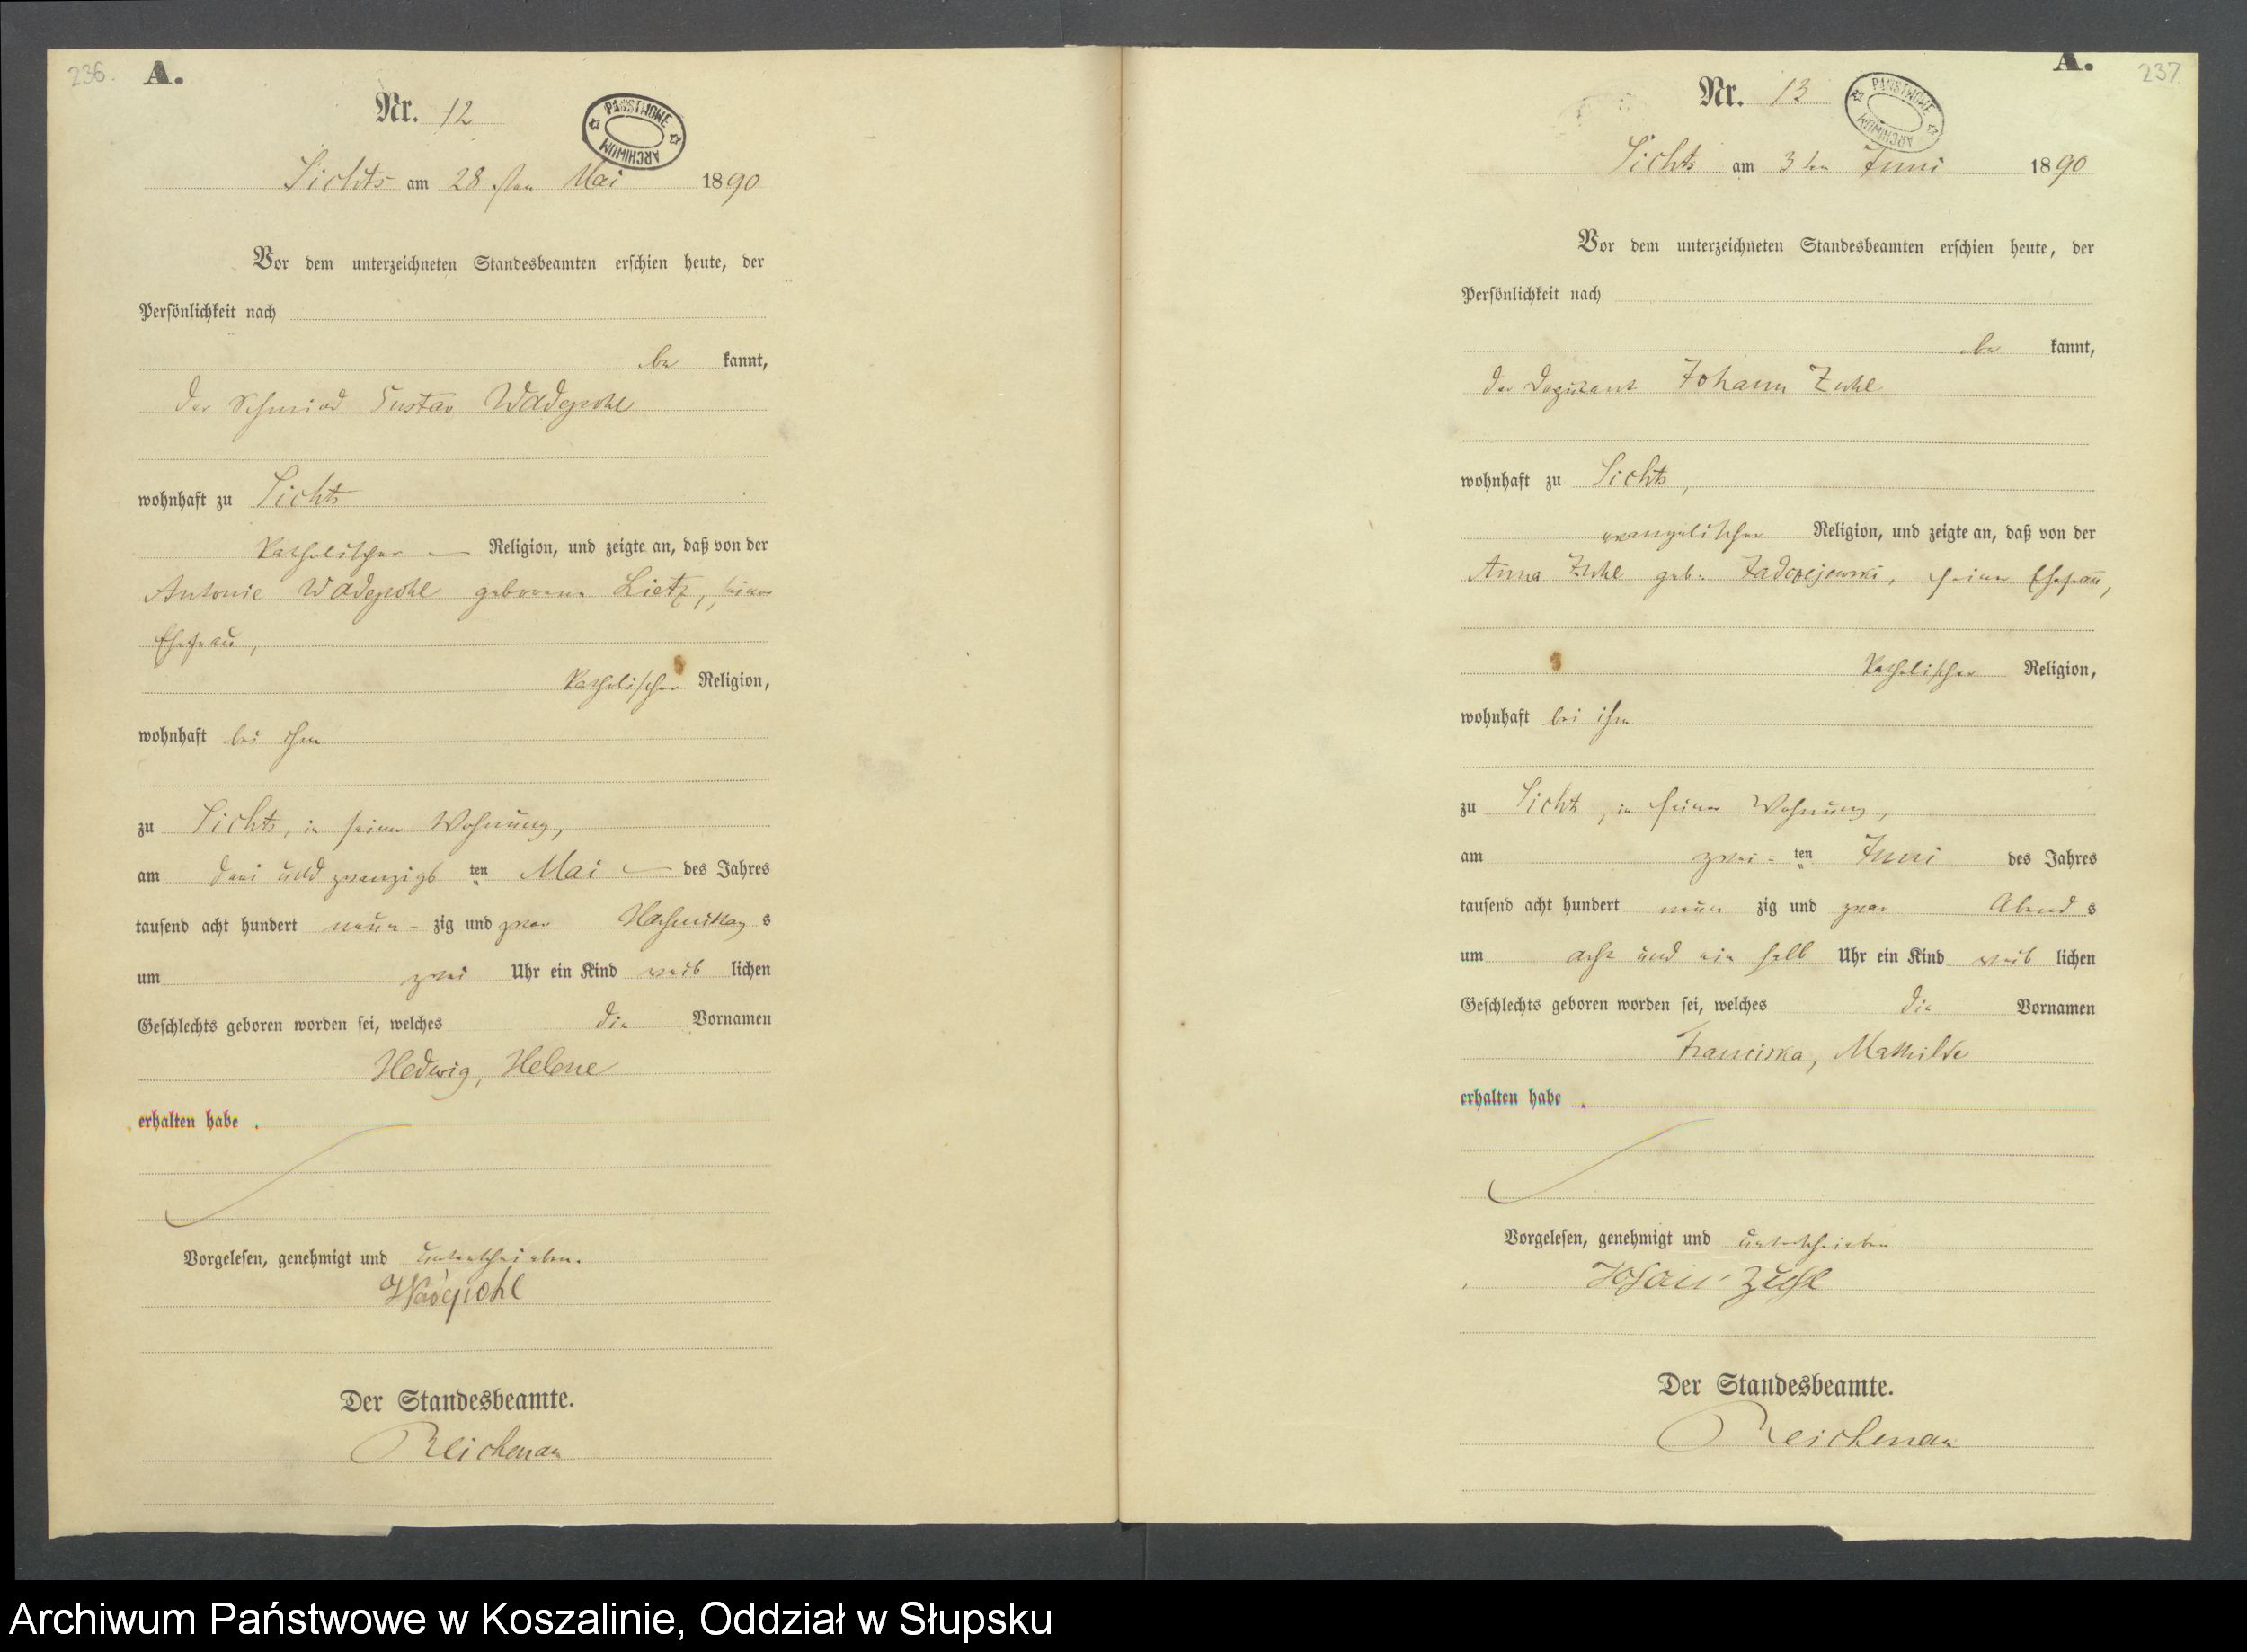 236.
A.
Nr. 12
PAŃSTWOWE ARCHIWUM
Sichts am 28 sten Mai 1890
Vor dem unterzeichneten Standesbeamten erschien heute, der
Persönlichkeit nach
be kannt,
der Schmied Gustav Wädepohl
wohnhaft zu Sichts
katholischer Religion, und zeigte an, daß von der
Antonie Wädepohl geborene Lietz, seiner
Ehefrau,
katholischer Religion,
wohnhaft bei ihm
zu Sichts, in seiner Wohnung,
am drei und zwanzigs ten Mai des Jahres
tausend acht hundert neun - zig und zwar Nachmittag s
um zwei Uhr ein Kind weib lichen
Geschlechts geboren worden sei, welches die Vornamen
Hedwig, Helene
erhalten habe.
Vorgelesen, genehmigt und unterschrieben.
Wädepohl
Der Standesbeamte.
Reichenau
A.
237.
Nr. 13
PAŃSTWOWE ARCHIWUM
Sichts am 3 ten Juni 1890
Vor dem unterzeichneten Standesbeamten erschien heute, der
Persönlichkeit nach
be kannt,
der Deputant Johann Zuhl
wohnhaft zu Sichts,
evangelischer Religion, und zeigte an, daß von der
Anna Zuhl geb. seiner Ehefrau,
katholischer Religion,
wohnhaft bei ihm
zu Sichts, in seiner Wohnung,
am zwei = ten Juni des Jahres
tausend acht hundert neun zig und zwar Abend s
um acht und ein halb Uhr ein Kind weib lichen
Geschlechts geboren worden sei, welches die Vornamen
Franciska, Mathilde
erhalten habe.
Vorgelesen, genehmigt und unterschrieben
Johan Zuhl
Der Standesbeamte.
Reichenau
Archiwum Państwowe w Koszalinie, Oddział w Słupsku